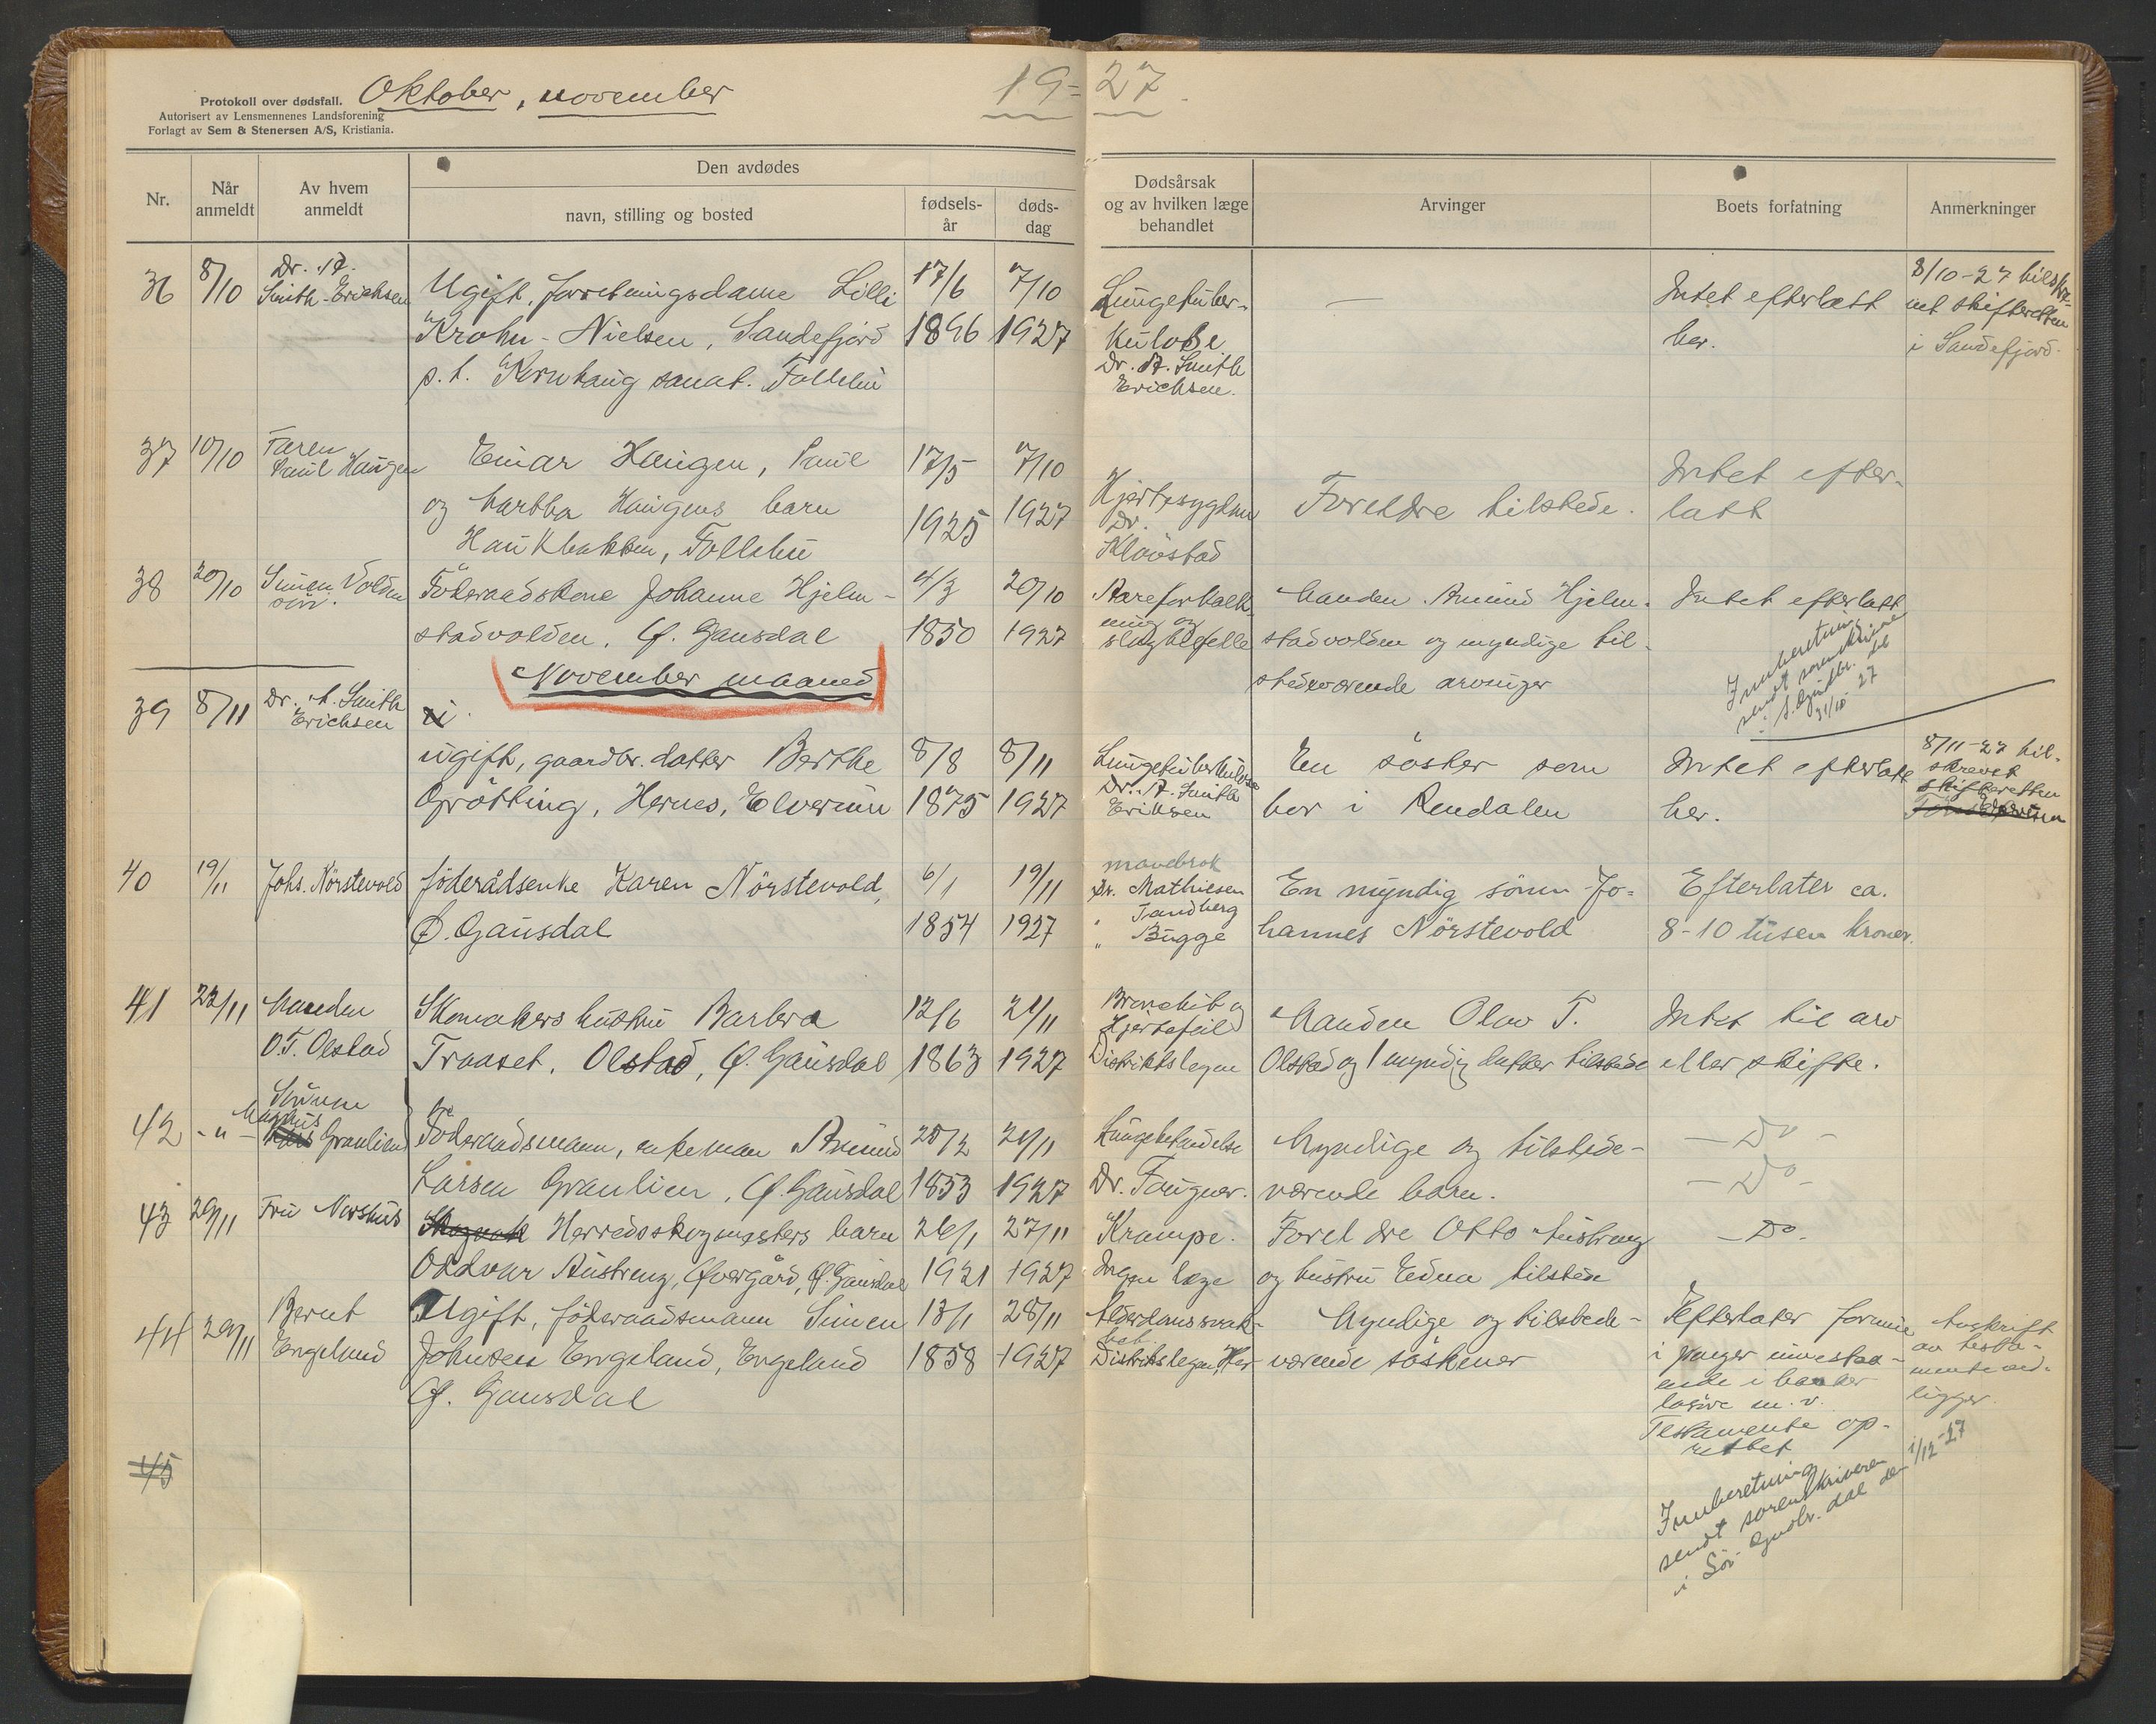 Protokoll over dødsfall. Oktober, november 19=27.
Autorisert av Lensmennenes Landsforening
Forlagt av Sem & Stenersen A/S, Kristiania.
Nr.
Når anmeldt
Av hvem anmeldt
Den avdødes
navn, stilling og bosted
fødsels-år
døds-dag
Dødsårsak og av hvilken læge behandlet
Arvinger
Boets forfatning
Anmerkninger
36
8/10
Dr. A.
Smith-Erichsen
Ugift, forretningsdame Lilli
Krohn-Nielsen, Sandefjord
p.t. Kornhaug sanat. Follebu
17/6
1896
7/10
1927
Lungetuber-
kulose
Dr. A. Smith
Erichsen.
—
Intet efterlatt
her.
8/10-27 tilskr-
vet skifteretten
i Sandefjord.
37
10/10
Faren
Paul Haugen
Einar Haugen, Paul
og Martha Haugens barn
Haukbakken, Follebu
17/5
1925
7/10
1927
Hjertesygdom
Dr.
Klovstad
Foreldre tilstede.
Intet efter-
latt
38
20/10
Simen Volden
sön.
Föderaadskone Johanne Hjelm-
stadvolden, Ø. Gausdal
4/3
1850
20/10
1927
Aareforkalk-
ning og
slagtilfelle
Manden Amund Hjelm-
stadvolden og myndige til-
stedeværende arvinger
Intet efterlatt
Innberetning
sendt sorenskriveren
S. Gudbr. dal
31/10 27
November maaned
39
8/11
Dr. A. Smith
Erichsen
ugift, gaardbr. datter Berthe
Grötting, Hernes, Elverum
8/8
1875
8/11
1927
Lungetuberkulose
Dr. A. Smith
Eriksen
En söster som
bor i Rendalen
Intet efterlatt
her.
8/11-27 til-
skrevet
skifteretten
Elverum
40
19/11
Johs. Nörstevold
föderådsenke Karen Nörstevold,
Ø. Gausdal
6/1
1854
19/11
1927
mavebrok
Dr. Mathiesen
" Sandberg
" Bugge
En myndig sönn Jo=
hannes Nörstevold
Efterlater ca.
8-10 tusen kroner.
41
22/11
Manden
O.T. Olstad
Skomakers hustru Barbra
Traaset, Olstad, Ø. Gausdal
12/6
1863
21/11
1927
Bronchit og
Hjertefeil
Distriktslegen
Manden Olav T.
Olstad og 1 myndig datter tilstede
Intet til arv
eller skifte.
42
-"-
Sönnen
Magnus
Granlien
Föderaadsmann, enkeman Amund
Larsen Granlien, Ø. Gausdal
25/2
1853
21/11
1927
Lungebetendelse
Dr. Faugner.
Myndige og tilstede-
værende barn.
— Do —
— Do —
43
29/11
Fru Norshus
Herredsskogmesters barn
Oddvar Austreng, Øvergård, Ø. Gausdal
26/1
1921
27/11
1927
Krampe.
Ingen læge
Foreldre Otto Austreng
og hustru Edna tilstede
— Do -
44
29/11
Bernt
Engeland
Ugift, föderaadsmann Simen
Johnsen Engeland, Engeland
Ø. Gausdal
13/1
1858
28/11
1927
Alderdomssvak-
het
Distriktslegen, Her-
Myndige og tilstede-
værende söskener
Efterlater formue
i penger innestaa-
ende i banker
lösöre m.v.
Testamente op-
rettet
Innberetning
sendt sorenskriveren
i Sör Gudbr. dal den 1/12-27
Avskrift
av testa-
mente ved-
ligger.
45